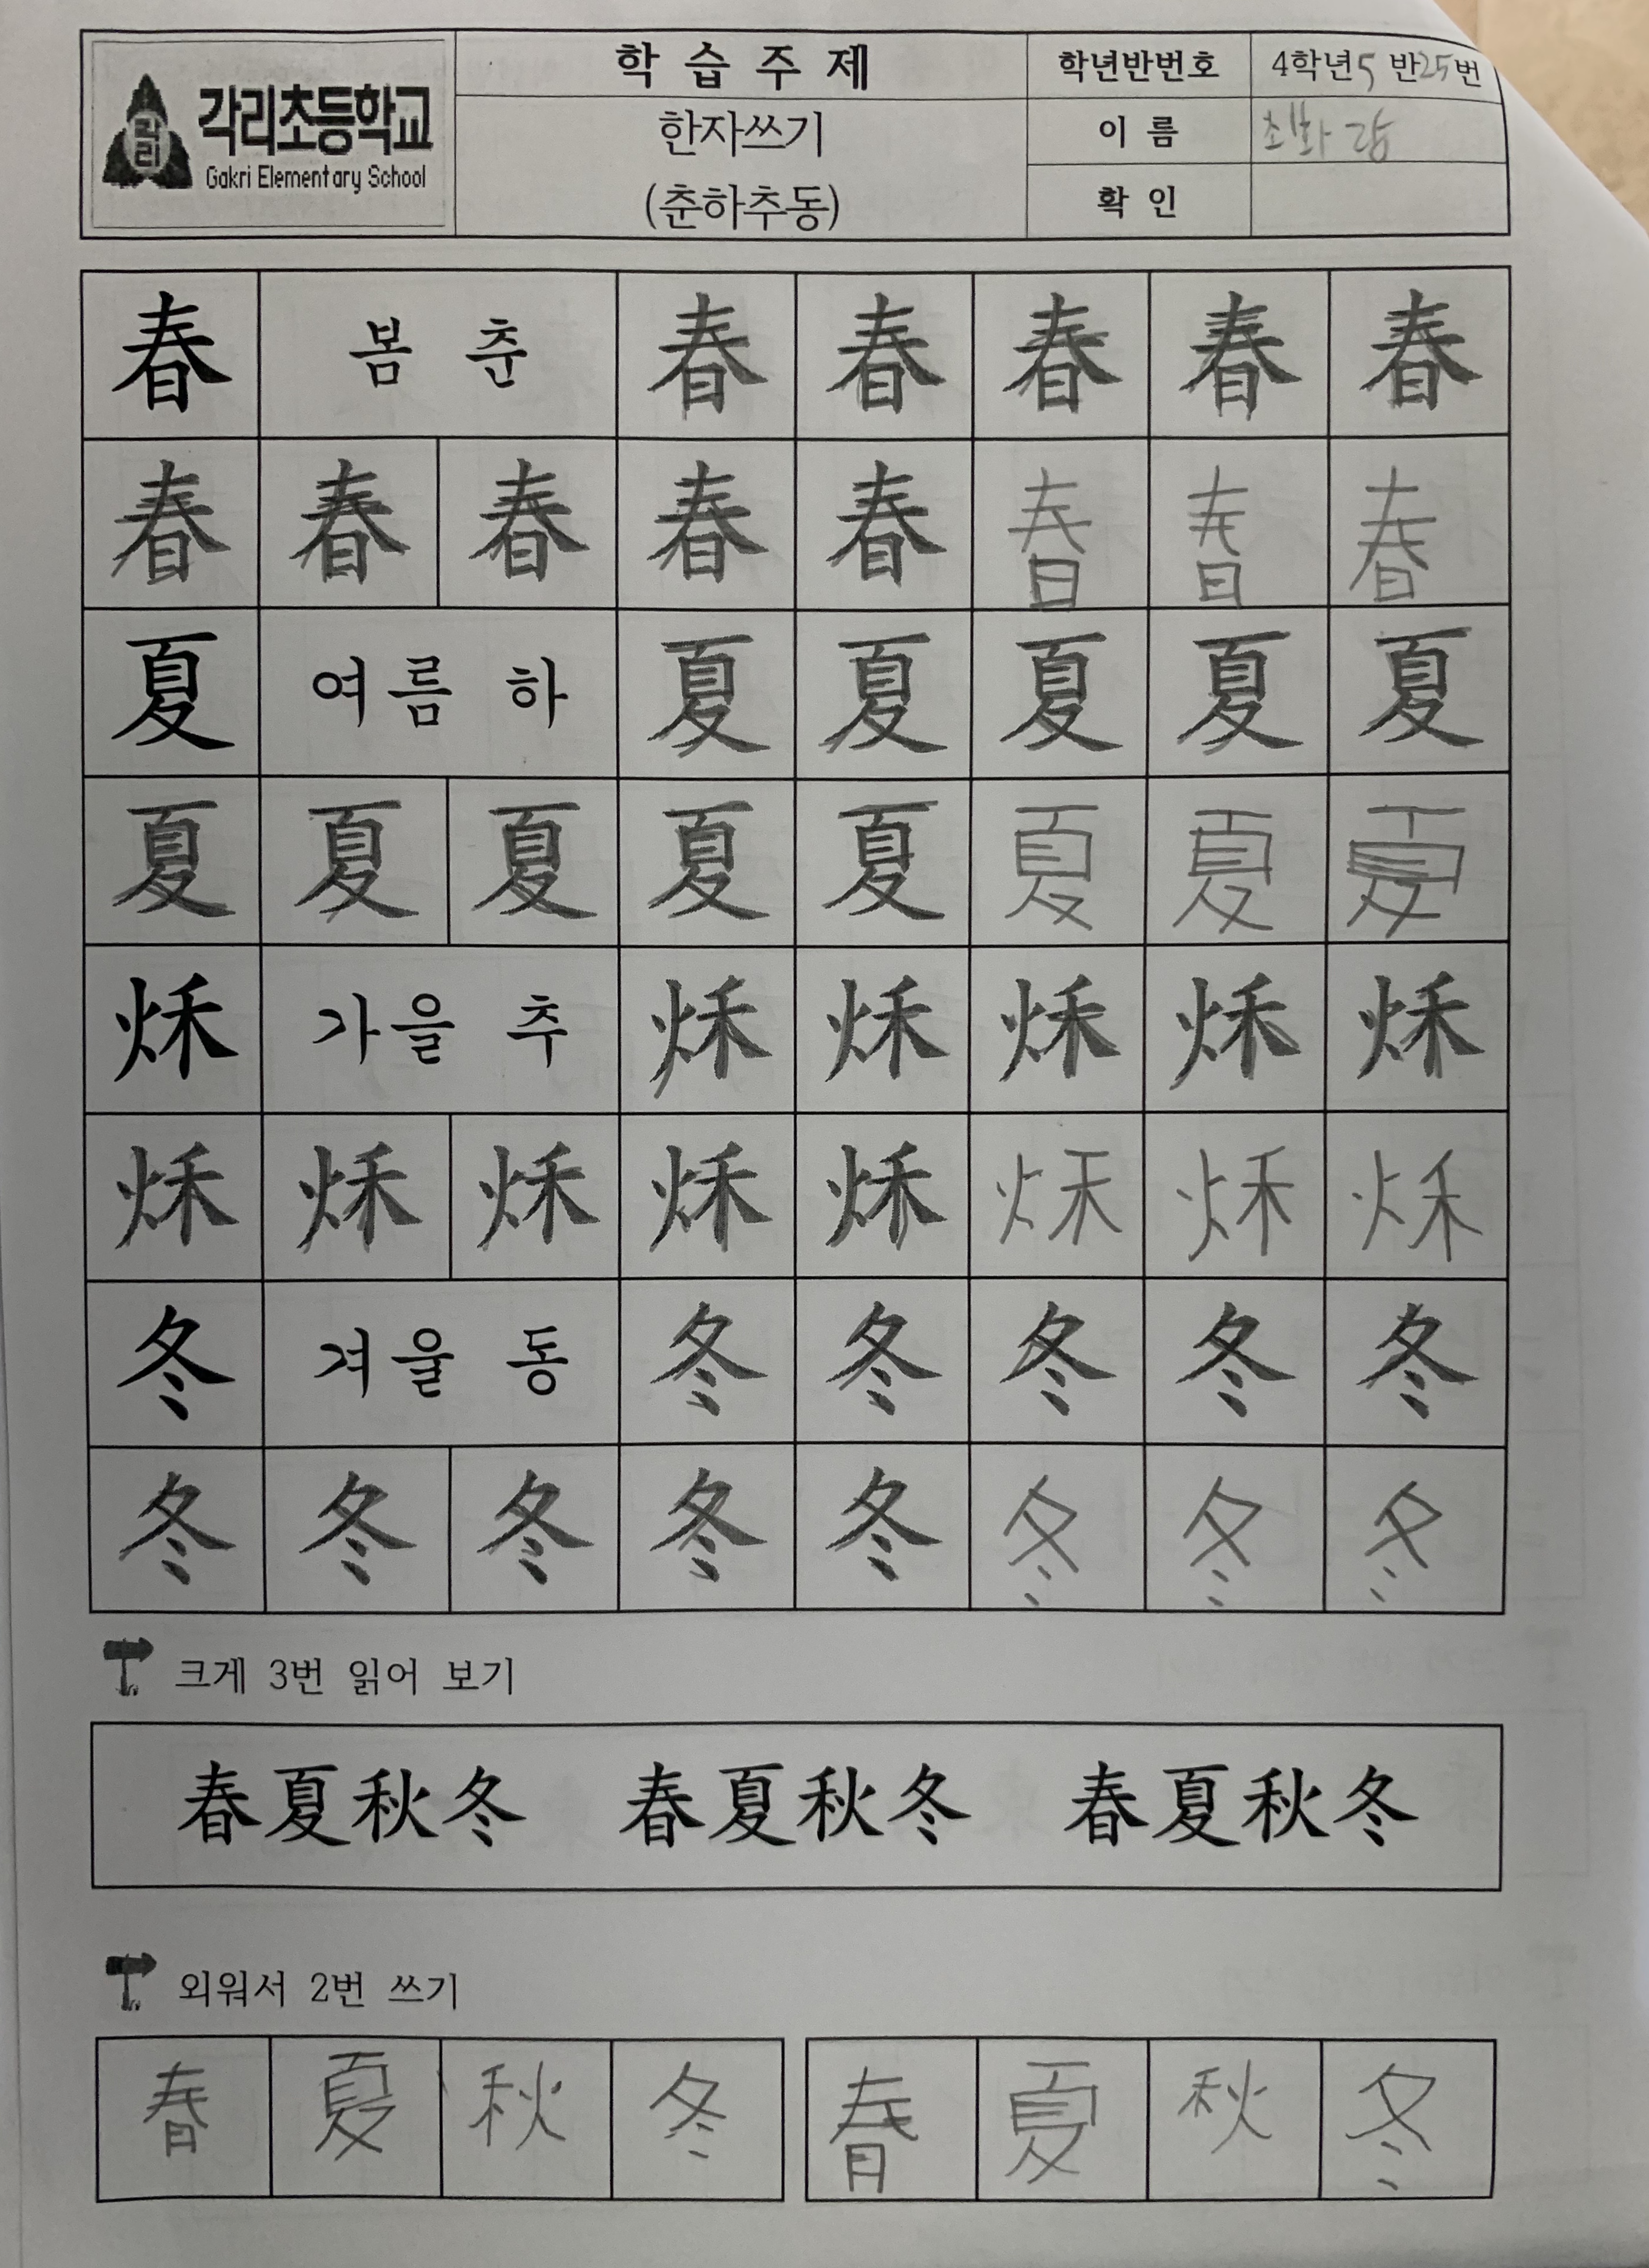 각리
각리초등학교
Gakri Elementary School
학 습 주 제
한자쓰기
(춘하추동)
학년반번호 4학년5 반25번
이 름 최화랑
확 인
春 봄 춘 春 春 春 春 春
春 春 春 春 春 春 春 春
夏 여름 하 夏 夏 夏 夏 夏
夏 夏 夏 夏 夏 夏 夏 夏
秌 가을 추 秌 秌 秌 秌 秌
秌 秌 秌 秌 秌 秌 秌 秌
冬 겨울 동 冬 冬 冬 冬 冬
冬 冬 冬 冬 冬 冬 冬 冬
크게 3번 읽어 보기
春夏秋冬 春夏秋冬 春夏秋冬
외워서 2번 쓰기
春 夏 秋 冬 春 夏 秋 冬